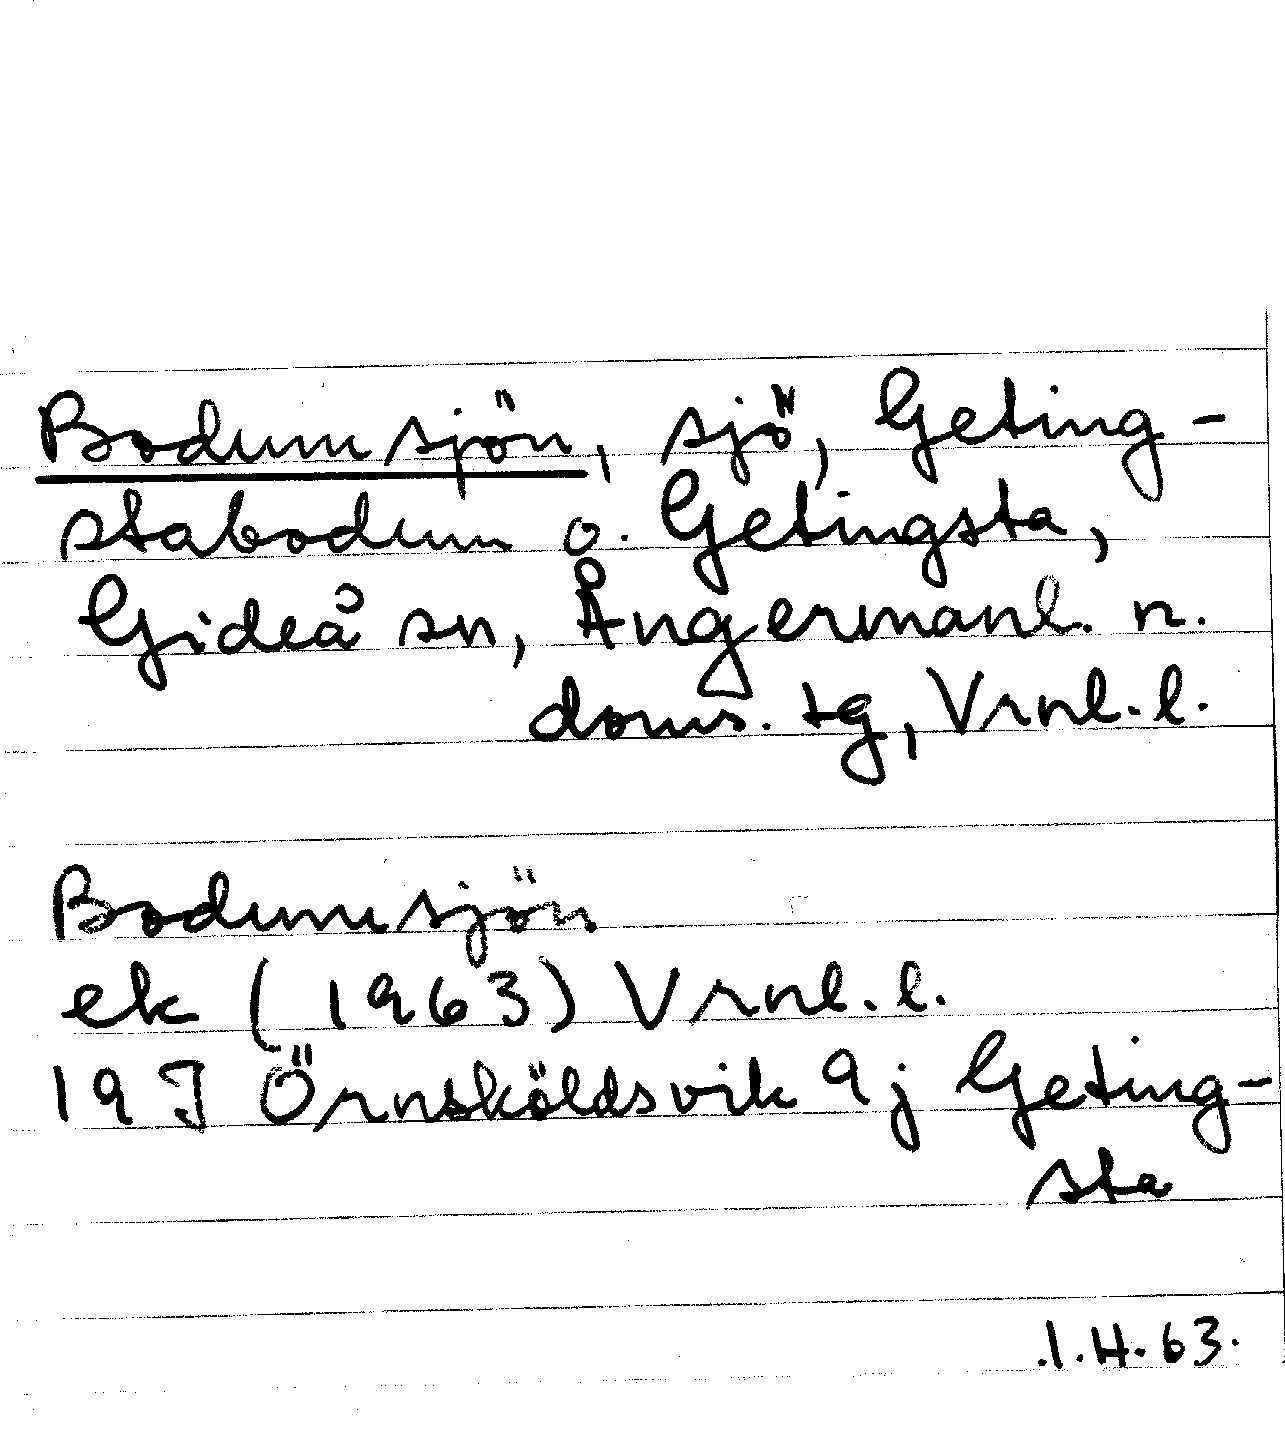 Bodumsjön, sjö, Geting-
stabodum o. Getingsta,
Gideå sn, Ångermanl. n.
doms. tg, Vrnl. l.
Bodumsjön
ek (1963) Vrnl. l.
19 J Örnsköldsvik 9 j Geting-
sta
.1.4.63.